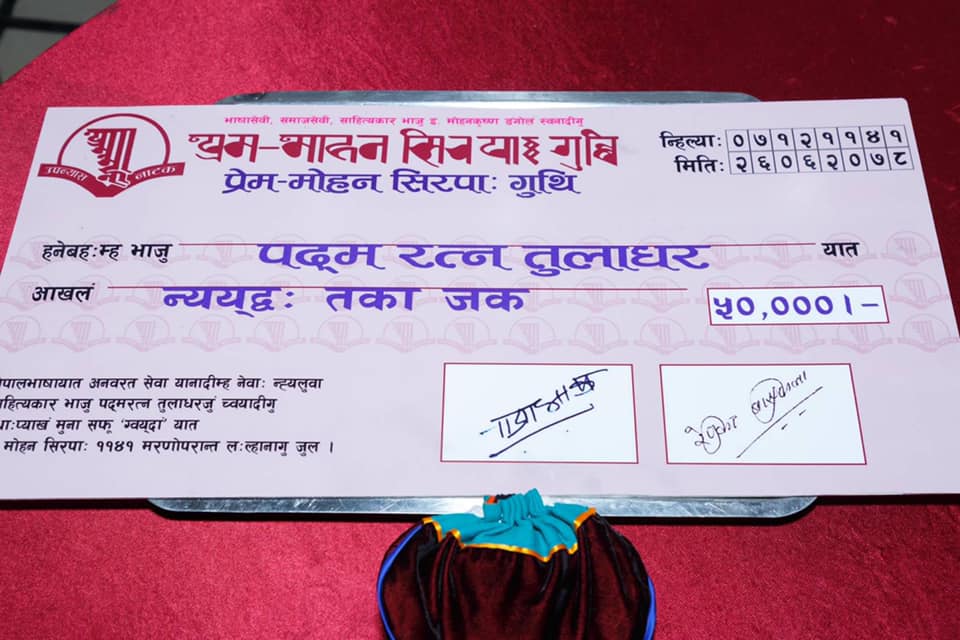 भाषासेवी, समाजसेवी, साहित्यकार भाजु इ. मोहनकृष्ण डंगोल स्वनादीगु
प्रेम-मोहन सिरपाः गुथि
उपन्यास नाटक
न्हिल्याः ०७१२११४१
मितिः २६०६२०७८
हनेबहःम्ह भाजु पद्‌म रत्न तुलाधर यात
आखलं न्यय्‌द्वः तका जक ५०,०००।–
पालभाषायात अनवरत सेवा यानादीम्ह नेवाः न्ह्यलुवा
हित्यकार भाजु पद्‌मरत्न तुलाधरजुं च्वयादीगु
ाःप्याखं मुना सफू 'ग्वय्‌दा' यात
मोहन सिरपाः ११४१ मरणोपरान्त लःल्हानागु जुल ।